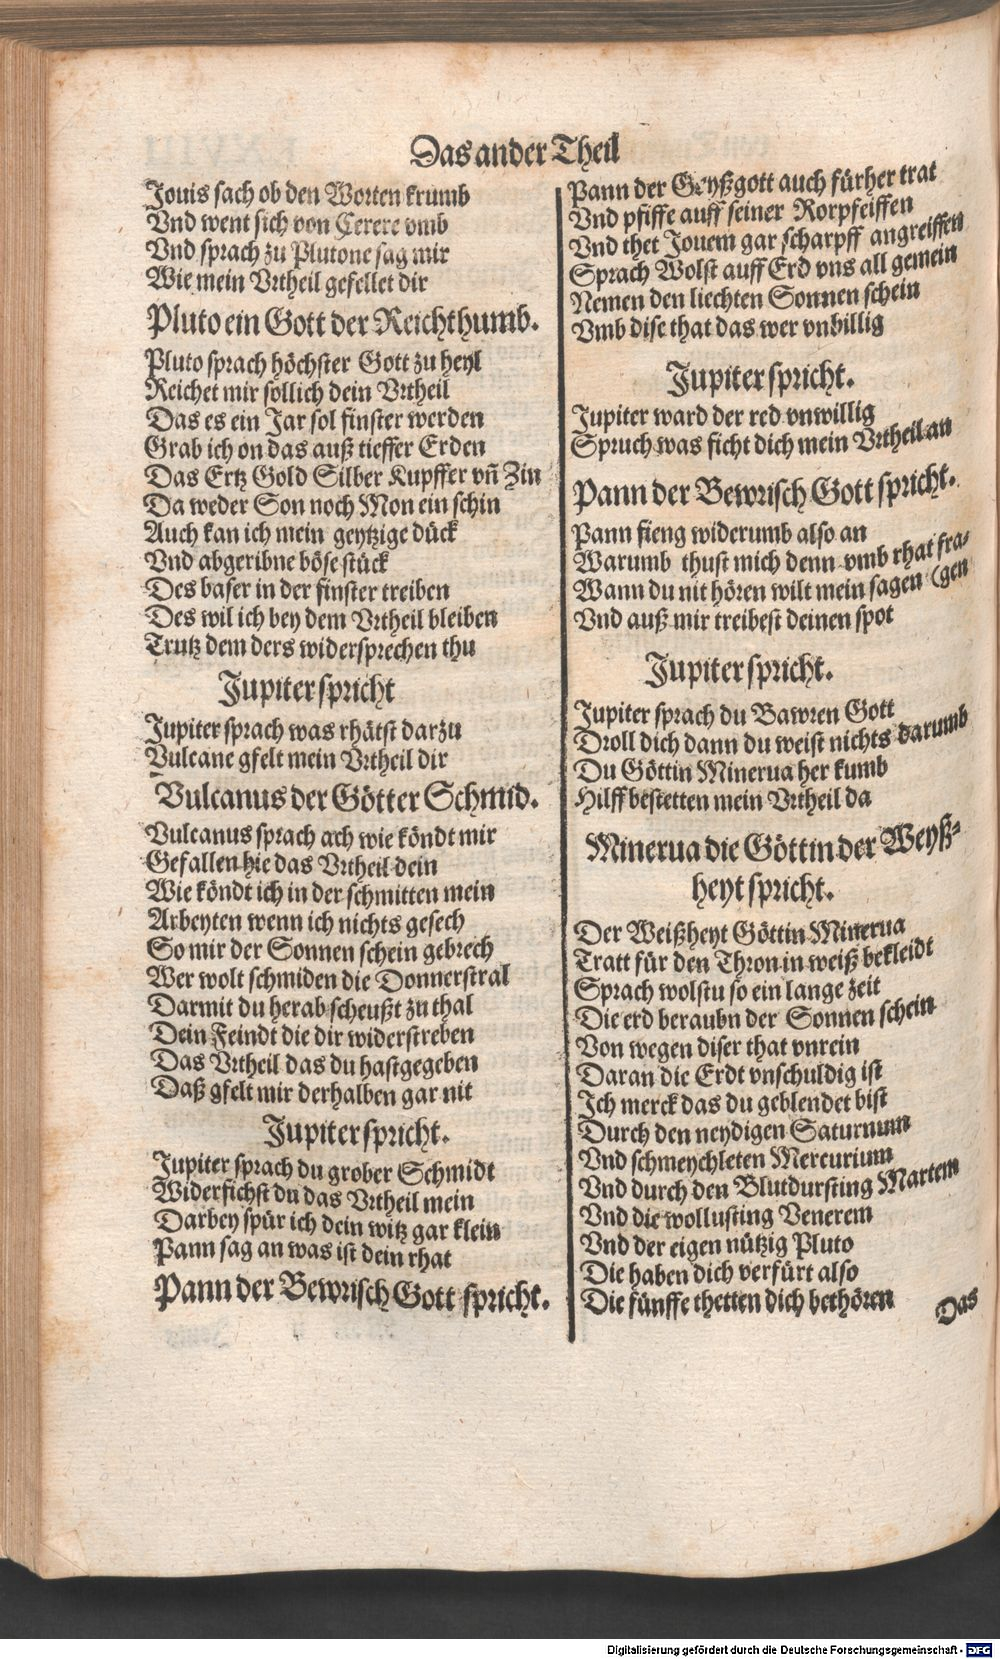 Das ander Theil
Jouis sach ob den Worten krumb
Vnd went sich von Cerere vmb
Vnd sprach zu Plutone sag mir
Wie mein Vrtheil gefellet dir
Pluto ein Gott der Reichthumb.
Pluto sprach höchster Gott zu heyl
Reichet mir sollich dein Vrtheil
Das es ein Jar sol finster werden
Grab ich on das auß tieffer Erden
Das Ertz Gold Silber Kupffer vñ Zin
Da weder Son noch Mon ein schin
Auch kan ich mein geytzige dück
Vnd abgeribne böse stück
Des baser in der finster treiben
Des wil ich bey dem Vrtheil bleiben
Trutz dem ders widersprechen thu
Jupiter spricht
Jupiter sprach was rhätst darzu
Vulcane gfelt mein Vrtheil dir
Vulcanus der Götter Schmid.
Vulcanus sprach ach wie köndt mir
Gefallen hie das Vrtheil dein
Wie köndt ich in der schmitten mein
Arbeyten wenn ich nichts gesech
So mir der Sonnen schein gebrech
Wer wolt schmiden die Donnerstral
Darmit du herab scheußt zu thal
Dein Feindt die dir widerstreben
Das Vrtheil das du hast gegeben
Daß gfelt mir derhalben gar nit
Jupiter spricht.
Jupiter sprach du grober Schmidt
Widerfichst du das Vrtheil mein
Darbey spür ich dein witz gar klein
Pann sag an was ist dein rhat
Pann der Bewrisch Gott spricht.
Pann der Geyßgott auch fürher trat
Vnd pfiffe auff seiner Rorpfeiffen
Vnd thet Jouem gar scharpff angreiffen
Sprach Wolst auff Erd vns all gemein
Nemen den liechten Sonnen schein
Vmb dise that das wer vnbillig
Jupiter spricht.
Jupiter ward der red vnwillig
Spruch was ficht dich mein Vrtheil an
Pann der Bewrisch Gott spricht.
Pann fieng widerumb also an
Warumb thust mich denn vmb rhat fra-
Wann du nit hören wilt mein sagen (gen
Vnd auß mir treibest deinen spot
Jupiter spricht.
Jupiter sprach du Bawren Gott
Droll dich dann du weist nichts darumb
Du Göttin Minerua her kumb
Hilff bestetten mein Vrtheil da
Minerua die Göttin der Weyß-
heyt spricht.
Der Weißheyt Göttin Minerua
Tratt für den Thron in weiß bekleidt
Sprach wolstu so ein lange zeit
Die erd beraubn der Sonnen schein
Von wegen diser that vnrein
Daran die Erdt vnschuldig ist
Ich merck das du geblendet bist
Durch den neydigen Saturnum
Vnd schmeychleten Mercurium
Vnd durch den Blutdursting Martem
Vnd die wollusting Venerem
Vnd der eigen nützig Pluto
Die haben dich verfürt also
Die fünffe thetten dich bethören
Das
Digitalisierung gefördert durch die Deutsche Forschungsgemeinschaft - DFG